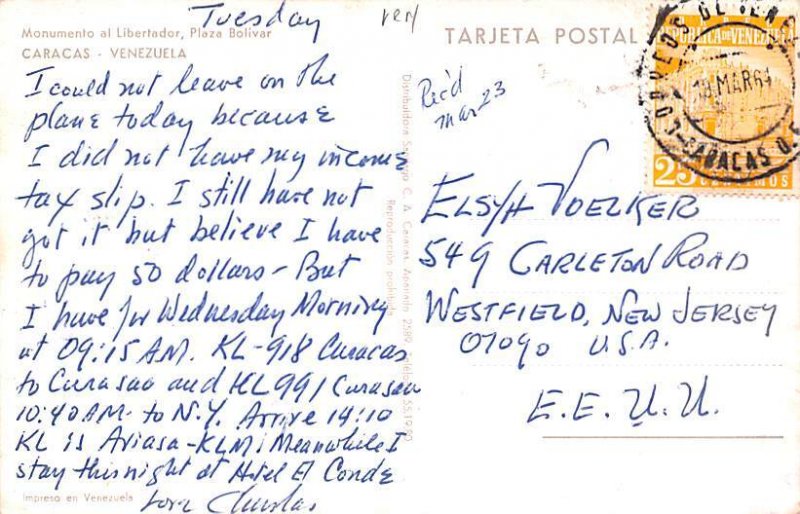 Tuesday
ven
Monumento al Libertador, Plaza Bolívar
CARACAS - VENEZUELA
I could not leave on the
plane today because
I did not have my income
tax slip. I still have not
got it but believe I have
to pay 50 dollars - But
I have for Wednesday Morning
at 09:15 AM. KL-918 Curacas
to Curasao and KL991 Curasao
10:40 AM. to N.Y. Arrive 14:10
KL is Aviasa-KLM; Meanwhile I
stay this night at Hotel El Conde
Love Charles
Impreso en Venezuela
Reproducción prohibida
TARJETA POSTAL
Rec'd
Mar 23
CORREOS DE VENEZ
REPUBLICA DE VENEZUELA
MAR 64
CARACAS D.F.
25 CENTIMOS
ELSYH VOELKER
549 CARLETON ROAD
WESTFIELD, NEW JERSEY
07090 U.S.A.
E.E.U.U.